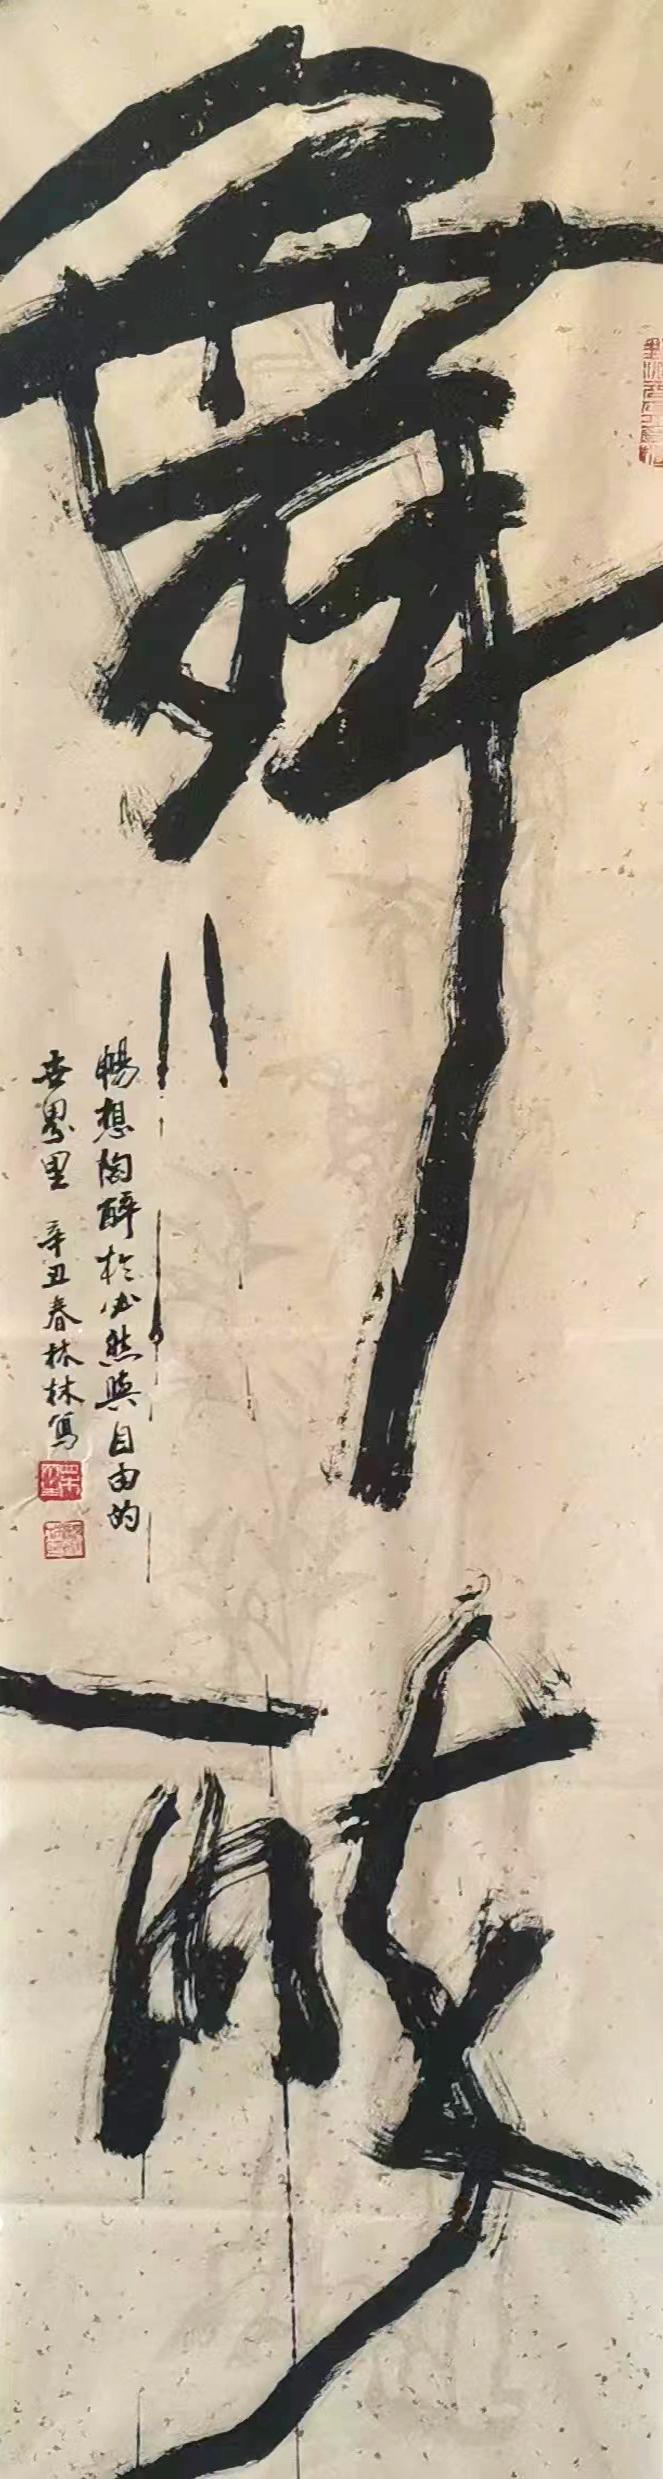 舞
暢想陶醉於必然與自由的
世界里 辛丑春林林寫